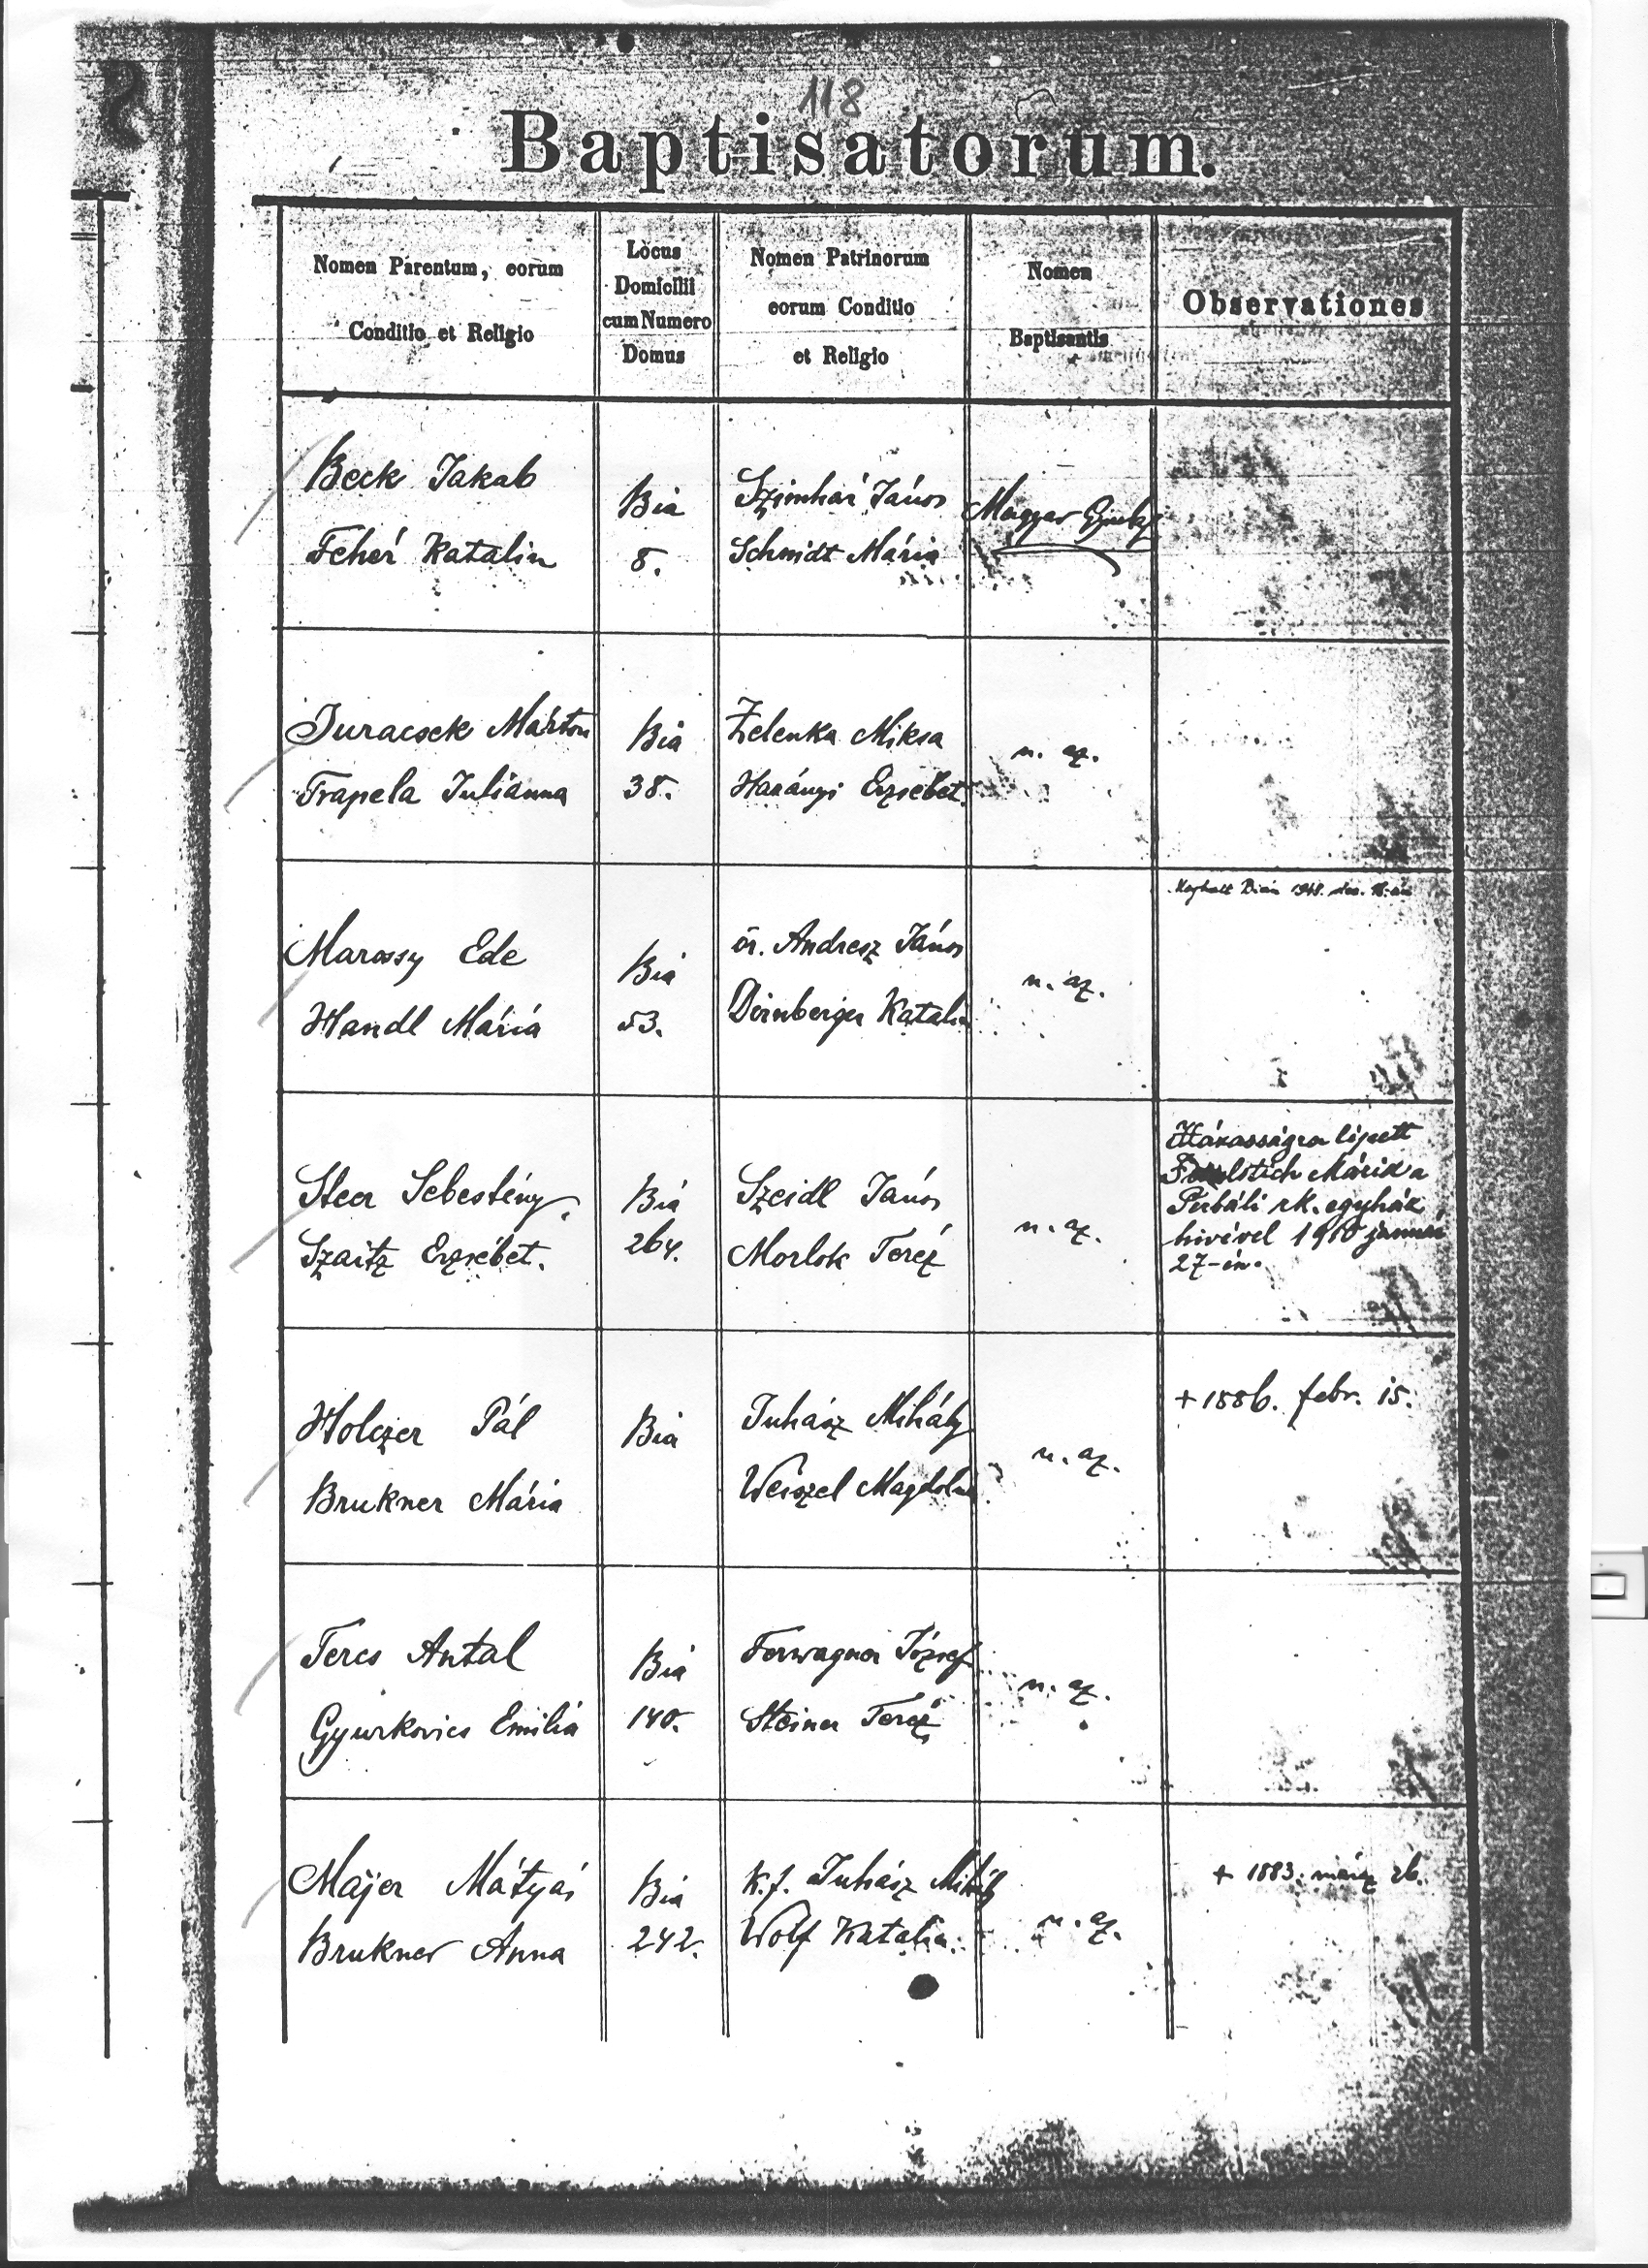 118
Baptisatorum.
Nomen Parentum, eorum
Conditio et Religio
Locus
Domicilii
cum Numero
Domus
Nomen Patrinorum
eorum Conditio
et Religio
Nomen
Baptisantis
Observationes
Beck Jakab
Fehér Katalin
Bia
8.
Szimhár János
Schmidt Mária
Magyar
Juracsek Márton
Trapela Juliánna
Bia
38.
Zelenka Miksa
Harányi Erzsébet
n. az.
Marossy Ede
Handl Mária
Bia
53.
ör. Andresz János
Dirnberger Katalin
n. az.
Meghalt Bián 1948.
Steer Sebestény
Szaitz Erzsébet.
Bia
264.
Szeidl János
Morlok Teréz
n. az.
Házasságra lépett
Mária a
rk. egyház
hivével 1910 január
27-én.
Holczer Pál
Brukner Mária
Bia
Juhász Mihály
Weiszel Magdolna
n. az.
+ 1886. febr. 15.
Teres Antal
Gyurkovics Emilia
Bia
140.
Forwagner József
Steiner Teréz
n. az.
Majer Mátyás
Brukner Anna
Bia
242.
K. J. Juhász Mihály
Wolf Katalin
n. az.
+ 1883. márz 26.